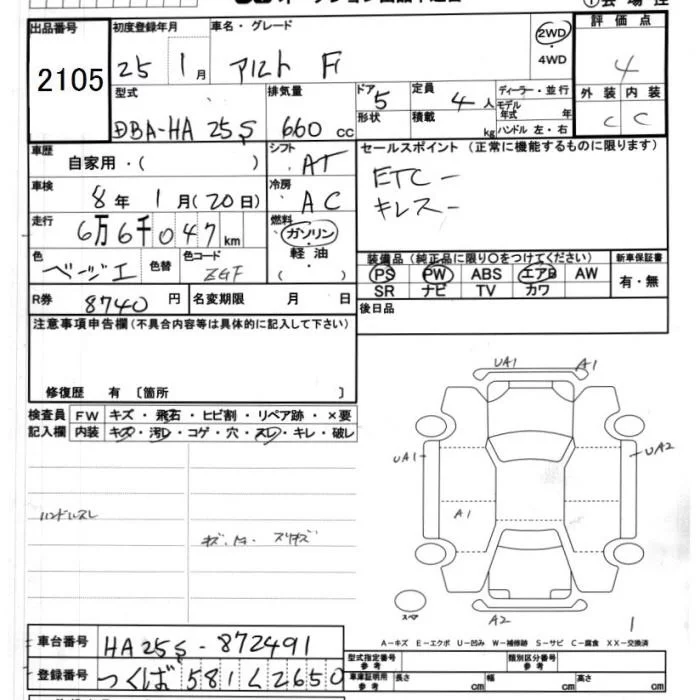 出品番号 初度登録年月 車名・グレード 評価点
2105 25 1月 アルト F 2WD・4WD 4
型式 排気量 ドア 5 定員 4人 ディーラー・並行 外装 内装
DBA-HA25S 660cc 形状 積載 kg モデル年式 年 ハンドル 左・右 C C
車歴 自家用・( ) シフト AT セールスポイント(正常に機能するものに限ります)
車検 8年1月(20日) 冷房 AC ETC-
走行 6万6千047km 燃料 ガソリン・軽油・( ) キレス-
色 ベージュ 色替 色コード ZGF
装備品(純正品に限り○をつけてください) 新車保証書
PS PW ABS エアB AW 有・無
SR ナビ TV カワ
R券 8740円 名変期限 月 日 後日品
注意事項申告欄(不具合内容等は具体的に記入して下さい)
修復歴 有 〔箇所 〕
検査員 FW キズ・飛石・ヒビ割・リペア跡・×要
記入欄 内装 キズ・汚レ・コゲ・穴・スレ・キレ・破レ
ハンドルスレ
UA1 A1
UA1 UA2
A1
スペア A2 1
A-キズ E-エクボ U-凹み W-補修跡 S-サビ C-腐食 XX-交換済
車台番号 HA25S-872491 型式指定番号 参考 類別区分番号 参考
登録番号 つくば581く2650 車庫証明用 参考 長さ cm 幅 cm 高さ cm